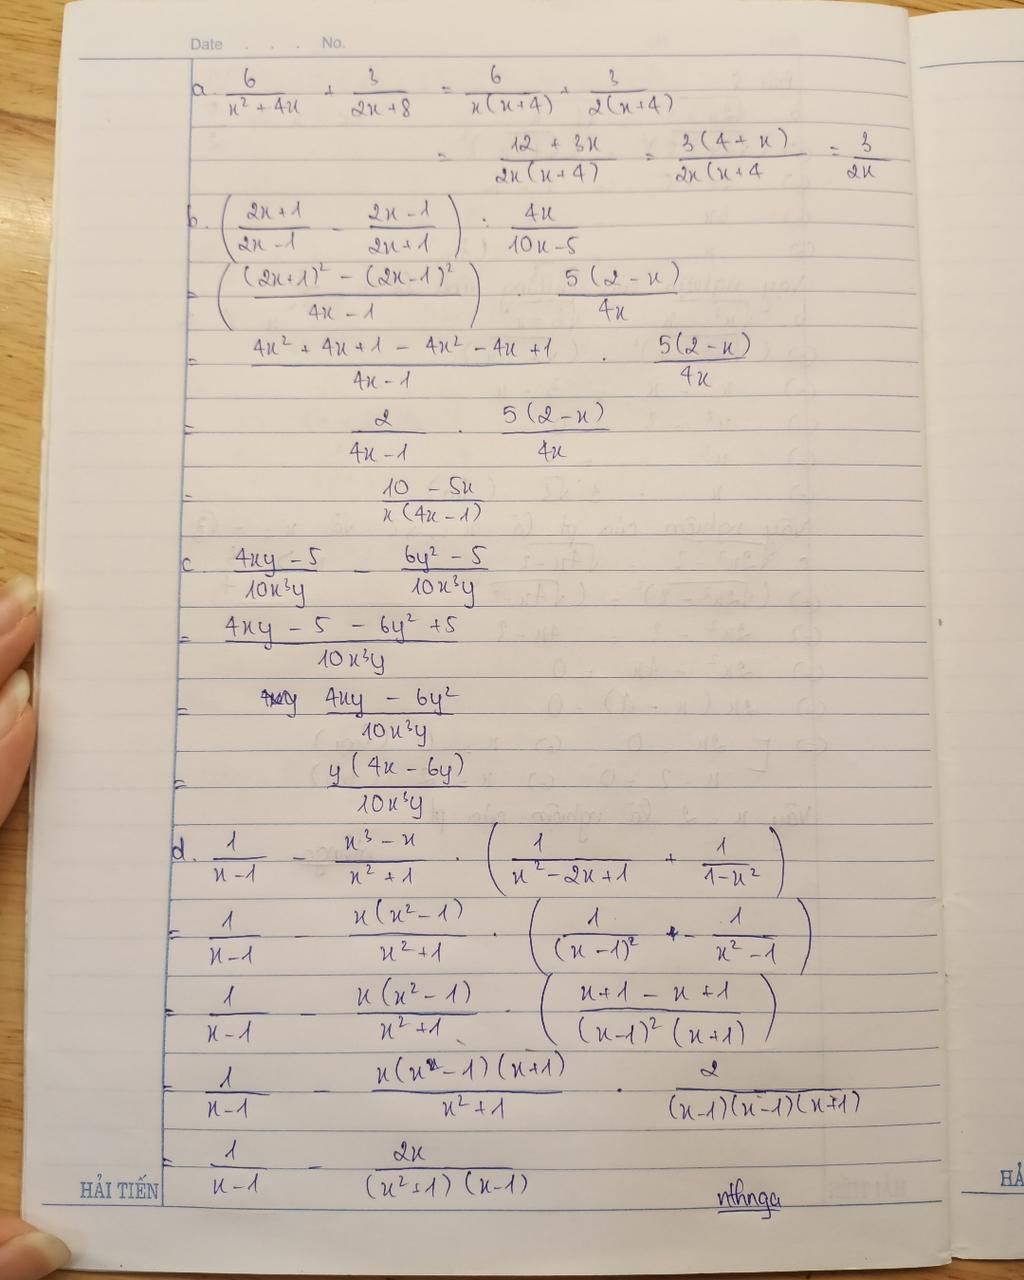 Date . . . No.
a. 6/(x² + 4x) + 3/(2x + 8) = 6/(x(x+4)) + 3/(2(x+4))
= (12 + 3x)/(2x(x+4)) = (3(4 + x))/(2x(x+4 = 3/(2x)
b. ((2x+1)/(2x-1) - (2x-1)/(2x+1)) : 4x/(10x-5)
= (((2x+1)² - (2x-1)²)/(4x - 1)) . (5(2-x))/(4x)
= (4x² + 4x + 1 - 4x² - 4x + 1)/(4x - 1) . (5(2-x))/(4x)
= 2/(4x - 1) . (5(2-x))/(4x)
= (10 - 5x)/(x(4x-1))
c. (4xy - 5)/(10x³y) - (6y² - 5)/(10x³y)
= (4xy - 5 - 6y² + 5)/(10x³y)
= (4xy - 6y²)/(10x³y)
= (y(4x - 6y))/(10x³y)
d. 1/(x-1) - (x³ - x)/(x² + 1) . (1/(x² - 2x + 1) + 1/(1-x²))
= 1/(x-1) - (x(x²-1))/(x²+1) . (1/((x-1)²) - 1/(x²-1))
= 1/(x-1) - (x(x²-1))/(x²+1) . ((x+1 - x + 1)/((x-1)² (x+1)))
= 1/(x-1) - (x(x-1)(x+1))/(x²+1) . 2/((x-1)(x-1)(x+1))
= 1/(x-1) - 2x/((x²+1)(x-1))
HẢI TIẾN
nthnga
HẢ